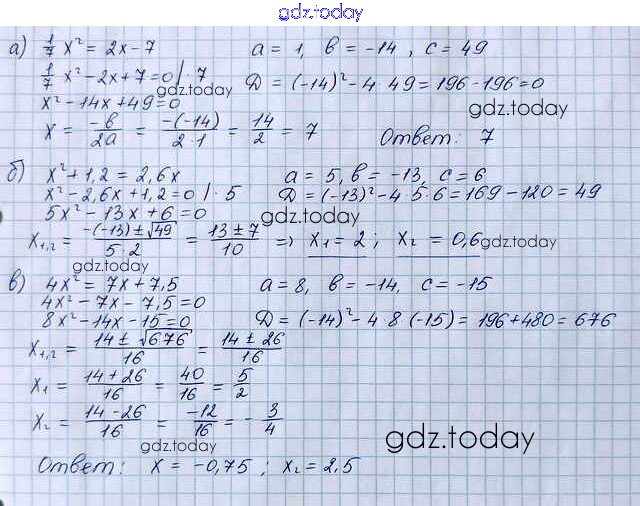 gdz.today
а) 1/7 x² = 2x - 7 a = 1, b = -14, c = 49
1/7 x² - 2x + 7 = 0 | · 7 D = (-14)² - 4 · 49 = 196 - 196 = 0
gdz.today
x² - 14x + 49 = 0
gdz.today
x = -b/2a = -(-14)/2·1 = 14/2 = 7 Ответ: 7
б) x² + 1,2 = 2,6x a = 5, b = -13, c = 6
x² - 2,6x + 1,2 = 0 | · 5 D = (-13)² - 4·5·6 = 169 - 120 = 49
5x² - 13x + 6 = 0
gdz.today
x₁,₂ = -(-13) ± √49/5·2 = 13 ± 7/10 => x₁ = 2; x₂ = 0,6
gdz.today
gdz.today
в) 4x² = 7x + 7,5 a = 8, b = -14, c = -15
4x² - 7x - 7,5 = 0
8x² - 14x - 15 = 0 D = (-14)² - 4·8(-15) = 196 + 480 = 676
x₁,₂ = 14 ± √676/16 = 14 ± 26/16
x₁ = 14 + 26/16 = 40/16 = 5/2
x₂ = 14 - 26/16 = -12/16 = - 3/4
gdz.today
gdz.today
Ответ: x = -0,75; x₂ = 2,5